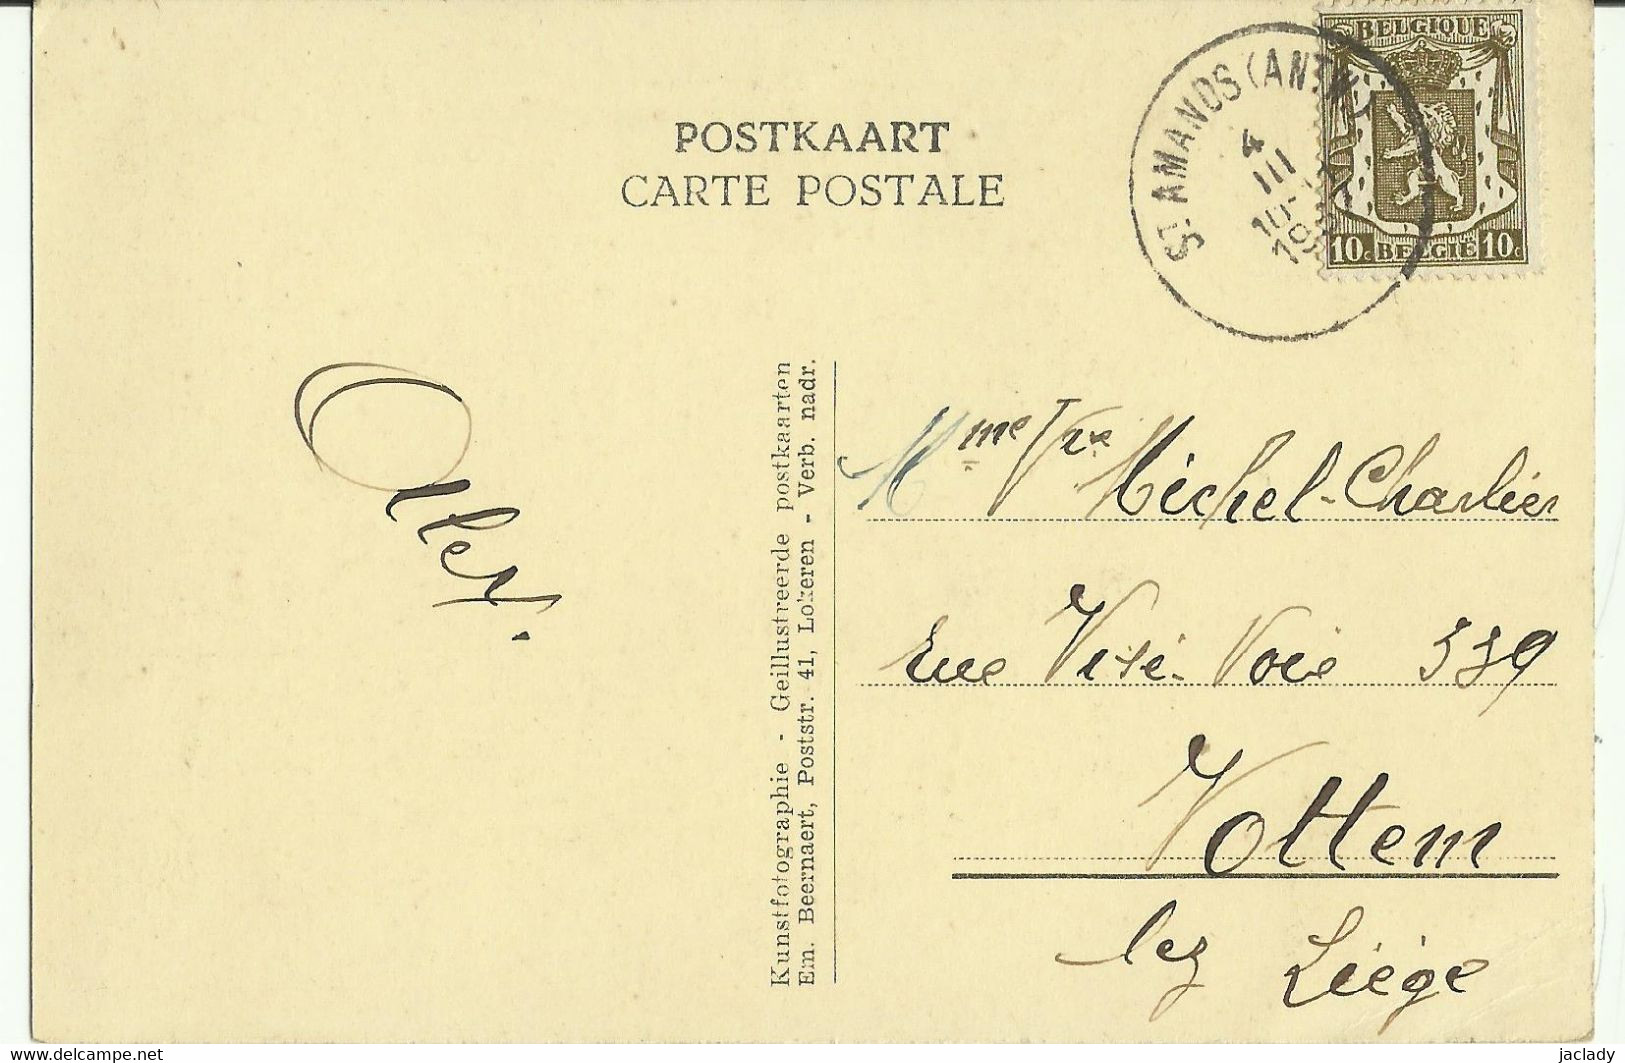 POSTKAART
CARTE POSTALE
ST. AMANDS (ANTW.)
4
III
10
19
BELGIQUE
10c BELGIË 10c
Albert.
Kunstfotographie - Geillustreerde postkaarten
Em. Beernaert, Poststr. 41, Lokeren - Verb. nadr.
Mme Vve Michel-Charlier
Rue Visé-Voie 339
Vottem
lez Liége
delcampe.net
jaclady